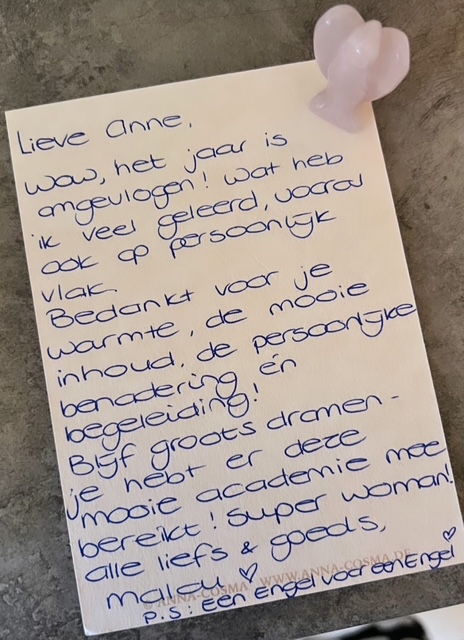 Lieve Anne,
Wow, het jaar is
omgevlogen! Wat heb
ik veel geleerd, vooral
ook op persoonlijk
vlak.
Bedankt voor je
warmte, de mooie
inhoud, de persoonlijke
benadering én
begeleiding!
Blijf groots dromen -
je hebt er deze
mooie academie mee
bereikt! Super woman!
alle liefs & goeds,
malou ♡
© ANNA-COSMA WWW.ANNA-COSMA.DE
P.S: Een Engel voor een Engel ♡